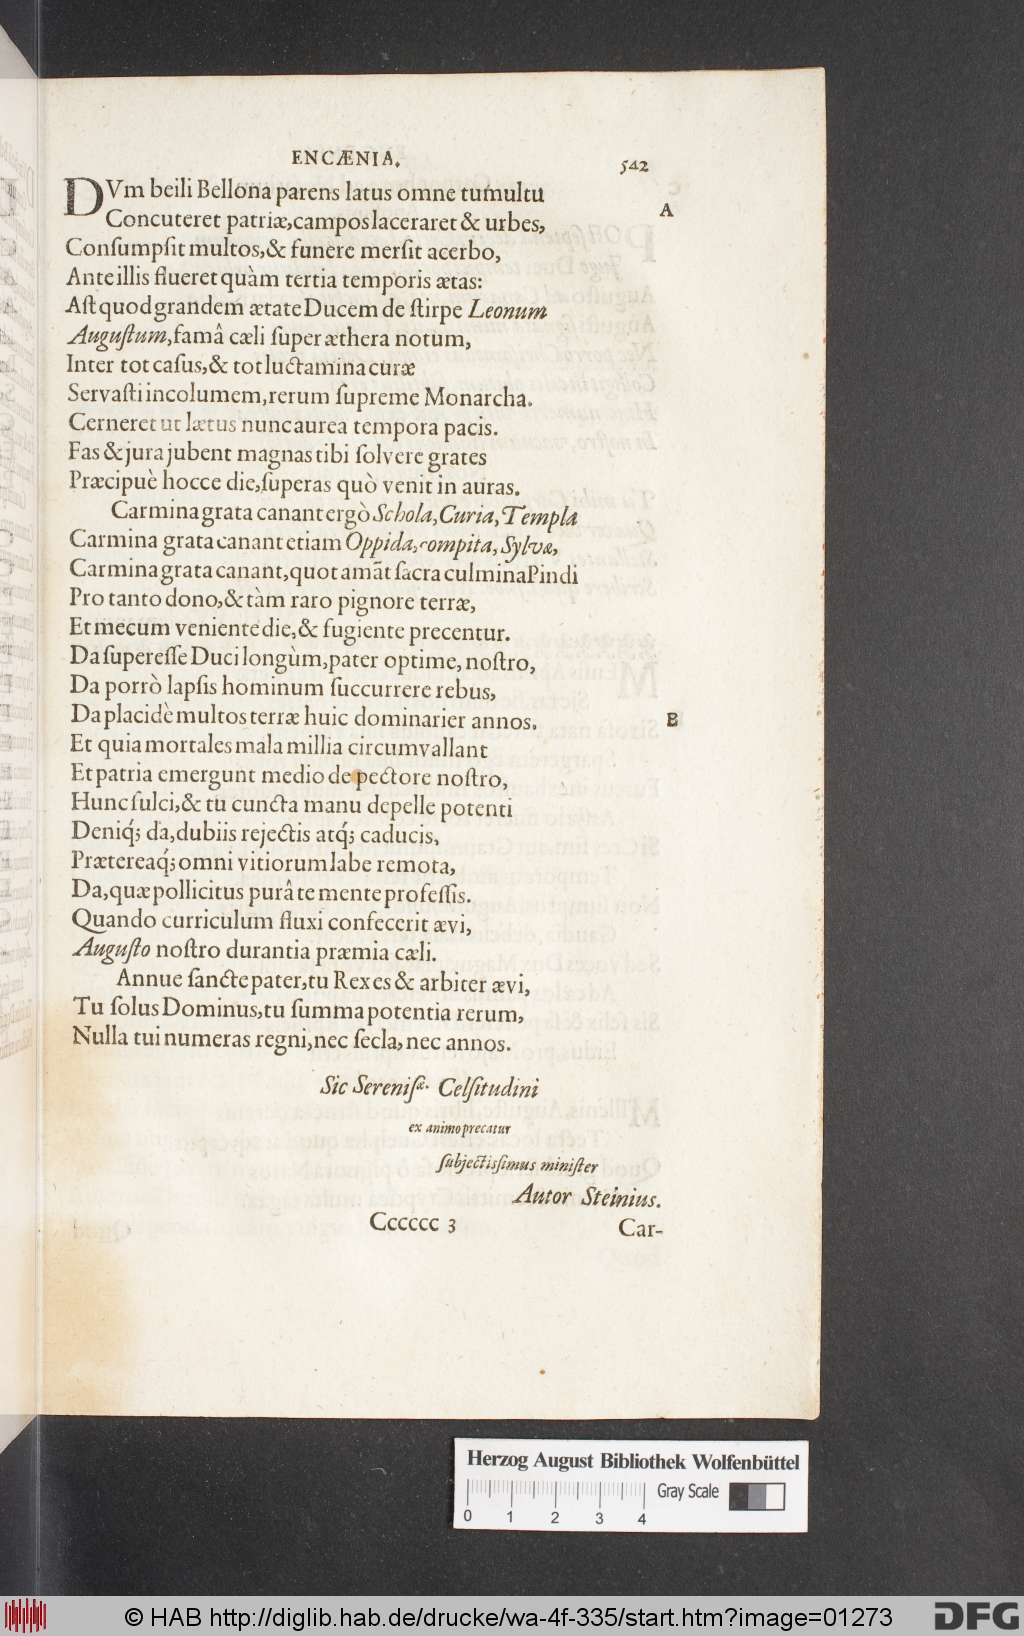 ENCÆNIA.
542
DVm beili Bellona parens latus omne tumultu
A
Concuteret patriæ, campos laceraret & urbes,
Conſumpſit multos, & funere merſit acerbo,
Ante illis flueret quàm tertia temporis ætas:
Aſt quod grandem ætate Ducem de ſtirpe Leonum
Auguſtum, famâ cæli ſuper æthera notum,
Inter tot caſus, & tot luctamina curæ
Servaſti incolumem, rerum ſupreme Monarcha.
Cerneret ut lætus nunc aurea tempora pacis.
Fas & jura jubent magnas tibi ſolvere grates
Præcipuè hocce die, ſuperas quò venit in auras.
Carmina grata canant ergò Schola, Curia, Templa
Carmina grata canant etiam Oppida, compita, Sylvæ,
Carmina grata canant, quot amāt ſacra culmina Pindi
Pro tanto dono, & tàm raro pignore terræ,
Et mecum veniente die, & fugiente precentur.
Da ſupereſſe Duci longùm, pater optime, noſtro,
Da porrò lapſis hominum ſuccurrere rebus,
Da placidè multos terræ huic dominarier annos.
B
Et quia mortales mala millia circumvallant
Et patria emergunt medio de pectore noſtro,
Hunc fulci, & tu cuncta manu depelle potenti
Deniq́; da, dubiis rejectis atq́; caducis,
Prætereaq́; omni vitiorum labe remota,
Da, quæ pollicitus purâ te mente profeſſis.
Quando curriculum fluxi confecerit ævi,
Auguſto noſtro durantia præmia cæli.
Annue ſancte pater, tu Rex es & arbiter ævi,
Tu ſolus Dominus, tu ſumma potentia rerum,
Nulla tui numeras regni, nec ſecla, nec annos.
Sic Sereniſæ. Celſitudini
ex animo precatur
ſubjectiſsimus miniſter
Autor Steinius.
Cccccc 3
Car-
Herzog August Bibliothek Wolfenbüttel
Gray Scale
0 1 2 3 4
© HAB http://diglib.hab.de/drucke/wa-4f-335/start.htm?image=01273
DFG